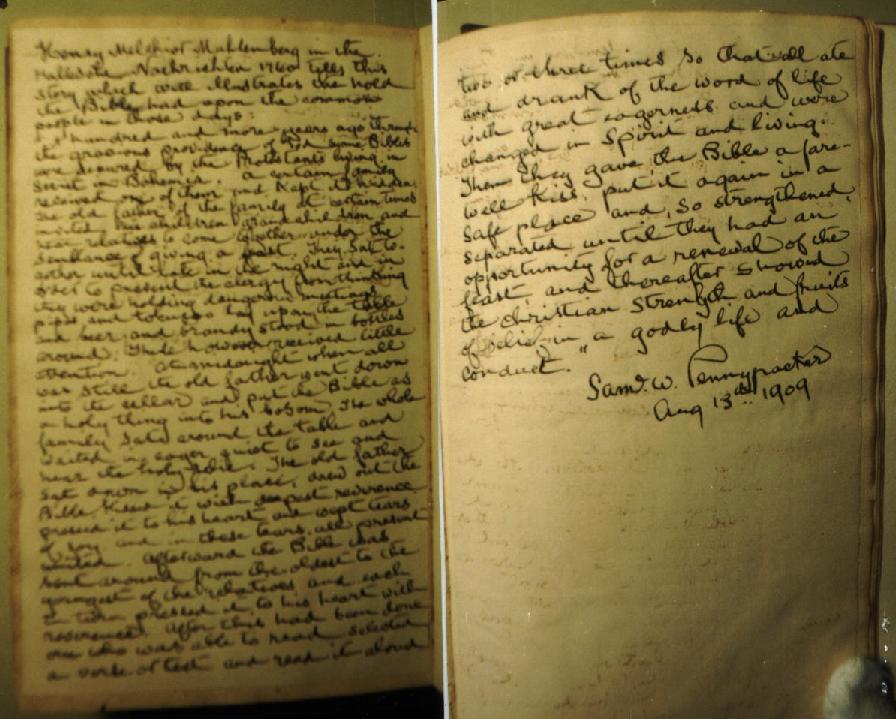 Henry Melchior Muhlenberg in the
Hallesche Nachrichten 1760 tells this
story which will illustrates the hold
the Bible had upon the common
people in those days:
hundred and more years ago through
the gracious providence of God some Bibles
were secured by the Protestants living in
secret in Bohemia. a certain family
received one of them and kept it hidden.
The old father of the family at certain times
invited his children grandchildren and
near relatives to come together under the
semblance of giving a feast. They sat to-
gether until late in the night and in
order to prevent the clergy from thinking
they were holding dangerous meetings
pipes and tobacco lay upon the table
and beer and brandy stood in bottles
around. These however received little
attention. At midnight when all
was still the old father went down
into the cellar and put the Bible as
a holy thing into his bosom. The whole
family sat around the table and
waited in eager quiet to see and
hear the holy Bible. The old father
sat down in his place, drew out the
Bible kissed it with deepest reverence
pressed it to his heart and wept tears
of joy and in these tears all present
united. Afterward the Bible was
sent around from the oldest to the
youngest of the relatives and each
in turn pressed it to his heart with
reverence. After this had been done
one who was able to read selected
a verse or text and read it aloud
two or three times so that all ate
and drank of the word of life
with great eagerness and were
changed in Spirit and living.
Then they gave the Bible a fare-
well kiss, put it again in a
safe place and, so strengthened
separated until they had an
opportunity for a renewal of the
feast, and thereafter showed
the christian strength and fruits
of belief in a godly life and
conduct."
Saml. W. Pennypacker
Aug 13th 1909